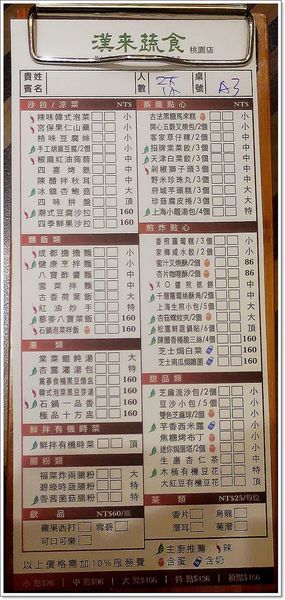 漢來蔬食 桃園店
貴賓 姓名
人數
桌號 A3
沙拉/涼菜 NT$
辣味韓式泡菜 小
宮保果仁山藥 小
桔味豆腐絲 小
手工胡麻豆腐/2個 小
椒麻紅油蒟蒻 中
四喜烤麩 中
陳醋拌秋耳 中
冰鎮杏鮑菇 大
四味拼盤 頂
潮式豆腐沙拉 160
四季鮮果沙拉 160
麵飯類
成都擔擔麵 小
健康烹拌麵 小
八寶酢醬麵 中
雪菜拌麵 中
古香荷葉飯 大
紅油炒手 特
藜麥八寶菜飯 160
石鍋泡菜拌飯 160
湯類
榨菜餛飩湯 大
杏露灌湯包 特
韓式泡菜黑豆芽湯
石鍋一品香
極品十方盅 160
鮮拌有機時菜
鮮拌有機時菜 頂
腸粉類
福菜炸兩腸粉 大
碧綠時蔬腸粉 大
香茜菌菇腸粉 特
飲品 NT$60/瓶
蘋果西打 雪碧
可口可樂
蒸籠點心
古法黑糖馬來糕 小
開心五穀叉燒包/2個 小
客家草仔粿/2個 小
招牌菜菜餃/3個 中
天津白菜餃/3個 中
剁椒獅子頭/3個 中
野米珍珠丸/3個 中
府城芋頭糕/3個 大
珍菇腐皮捲/3個 大
上海小籠湯包/4個 特
煎炸點心
香煎蘿蔔糕/3個 小
家鄉咸水餃/2個 小
蜜汁叉燒酥/2個 86
杏片咖哩酥/2個 86
XO醬煎腸粉 中
千層蘿蔔絲酥角/2個 中
上海生煎小包/3個 大
松露鮮蔬鍋貼/6個 頂
陳醋香椿脆三絲/4個 160
芝士焗白菜 160
芝士南瓜焗雞菌 160
甜品類
芝麻流沙包/2個 小
豆沙小包/5個 小
雙色芝麻球/2個 小
芋香西米露 小
焦糖烤布丁 小
迷你焗蛋塔/2個 小
生磨杏仁茶 中
木桶有機豆花 特
大紅豆有機豆花 頂
茶類 NT$25/每位
香片 烏龍
普洱 菊普
主廚推薦 辣
含蛋 含奶
以上價格需加10%服務費